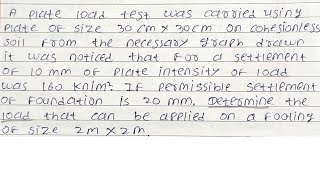 A plate load test was carried using
plate of size 30 cm x 30cm on cohesionless
soil from the necessary graph drawn
it was noticed that for a settlement
of 10 mm of plate intensity of load
was 160 kn/m². If permissible settlement
of foundation is 20 mm. Determine the
load that can be applied on a footing
of size 2m x 2m.